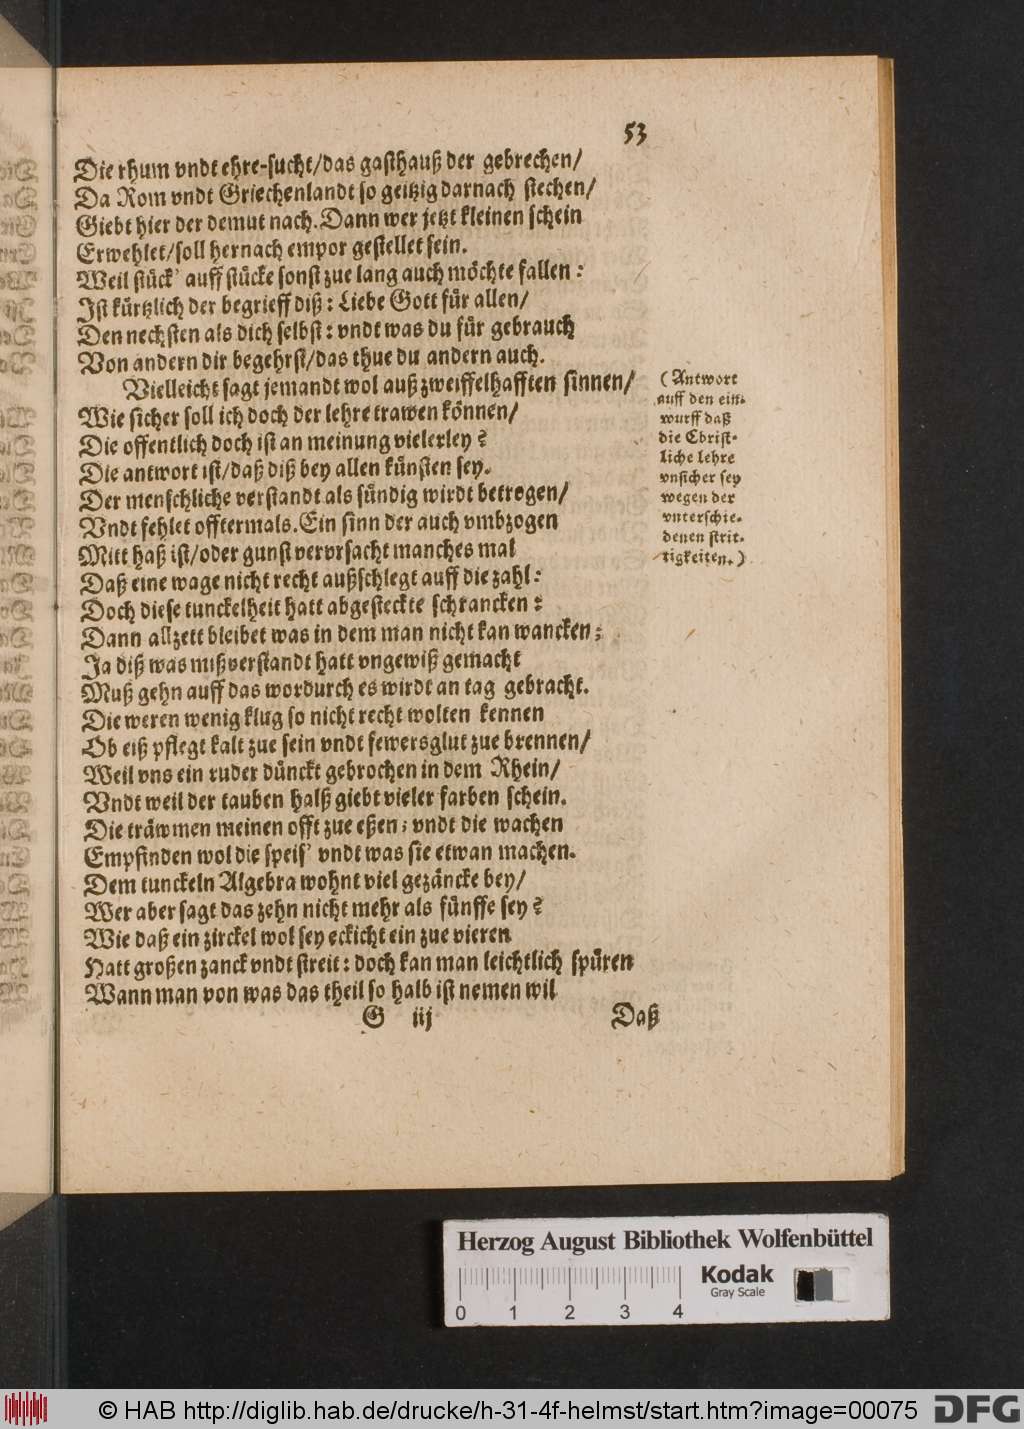 53
Die rhum vndt ehre-sucht/das gasthauß der gebrechen/
Da Rom vndt Griechenlandt so geitzig darnach stechen/
Giebt hier der demut nach. Dann wer jetzt kleinen schein
Erwehlet/soll hernach empor gestellet sein.
Weil stück' auff stücke sonst zue lang auch möchte fallen:
Ist kürtzlich der begrieff diß: Liebe Gott für allen/
Den nechsten als dich selbst: vndt was du für gebrauch
Von andern dir begehrst/das thue du andern auch.
Vielleicht sagt jemandt wol auß zweiffelhafften sinnen/
Wie sicher soll ich doch der lehre trawen können/
Die offentlich doch ist an meinung vielerley?
Die antwort ist/daß diß bey allen künsten sey.
Der menschliche verstandt als sündig wirdt betrogen/
Vndt fehlet offtermals. Ein sinn der auch vmbzogen
Mitt haß ist/oder gunst vervrsacht manches mal
Daß eine wage nicht recht außschlegt auff die zahl:
Doch diese tunckelheit hatt abgesteckte schrancken:
Dann allzett bleibet was in dem man nicht kan wancken;
Ja diß was mißverstandt hatt vngewiß gemacht
Muß gehn auff das wordurch es wirdt an tag gebracht.
Die weren wenig klug so nicht recht wolten kennen
Ob eiß pflegt kalt zue sein vndt fewersglut zue brennen/
Weil vns ein ruder dünckt gebrochen in dem Rhein/
Vndt weil der tauben halß giebt vieler farben schein.
Die träwmen meinen offt zue eßen; vndt die wachen
Empfinden wol die speis' vndt was sie etwan machen.
Dem tunckeln Algebra wohnt viel gezäncke bey/
Wer aber sagt das zehn nicht mehr als fünffe sey?
Wie daß ein zirckel wol sey eckicht ein zue vieren
Hatt großen zanck vndt streit: doch kan man leichtlich spüren
Wann man von was das theil so halb ist nemen wil
G iij Daß
(Antwort
auff den ein-
wurff daß
die Christ-
liche lehre
vnsicher sey
wegen der
vnterschie-
denen strit-
tigkeiten.)
Herzog August Bibliothek Wolfenbüttel
Kodak
Gray Scale
0 1 2 3 4
© HAB http://diglib.hab.de/drucke/h-31-4f-helmst/start.htm?image=00075
DFG